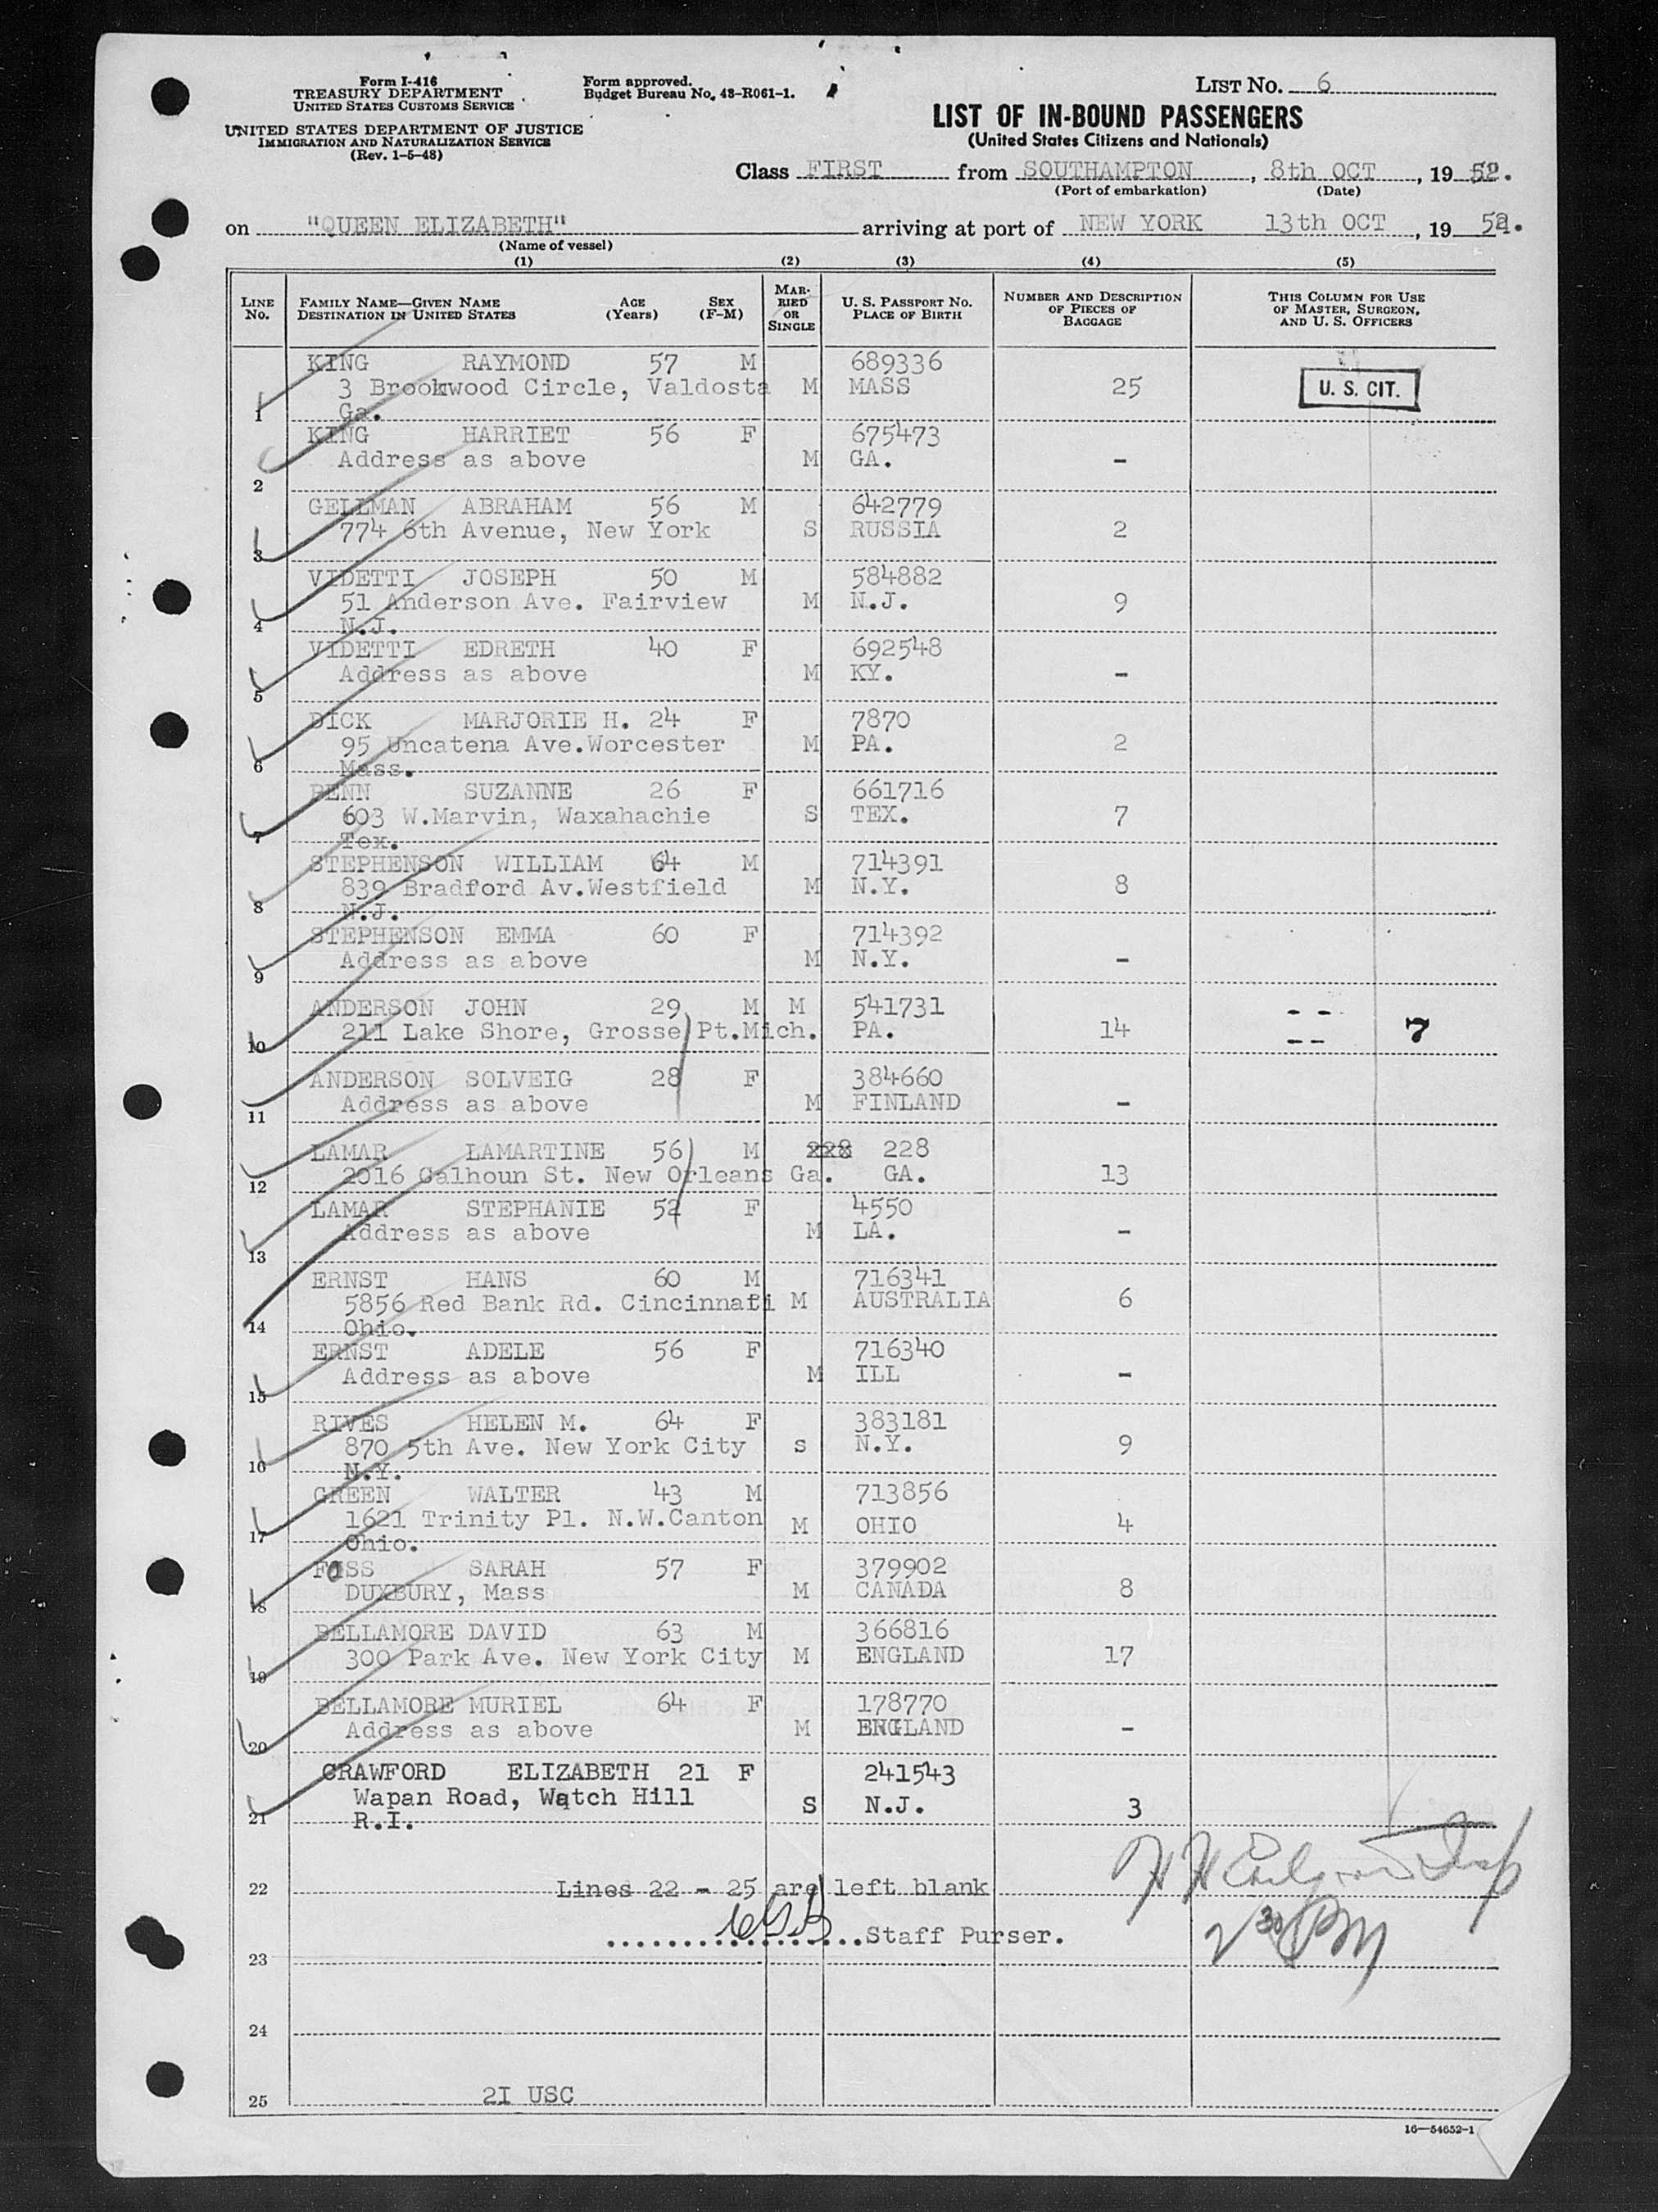 Form I-416
TREASURY DEPARTMENT
UNITED STATES CUSTOMS SERVICE
UNITED STATES DEPARTMENT OF JUSTICE
IMMIGRATION AND NATURALIZATION SERVICE
(Rev. 1-5-48)
Form approved.
Budget Bureau No. 43-R061-1.
LIST NO. 6
LIST OF IN-BOUND PASSENGERS
(United States Citizens and Nationals)
Class FIRST from SOUTHAMPTON, 8th OCT, 19 52.
(Port of embarkation) (Date)
on "QUEEN ELIZABETH" arriving at port of NEW YORK 13th OCT, 19 52.
(Name of vessel)
(1) (2) (3) (4) (5)
LINE NO.
FAMILY NAME—GIVEN NAME AGE SEX
DESTINATION IN UNITED STATES (Years) (F-M)
MARRIED OR SINGLE
U. S. PASSPORT NO.
PLACE OF BIRTH
NUMBER AND DESCRIPTION
OF PIECES OF
BAGGAGE
THIS COLUMN FOR USE
OF MASTER, SURGEON,
AND U. S. OFFICERS
KING RAYMOND 57 M 689336
3 Brookwood Circle, Valdosta M MASS 25 U. S. CIT.
1 Ga.
KING HARRIET 56 F 675473
Address as above M GA. -
2
GELLMAN ABRAHAM 56 M 642779
774 6th Avenue, New York S RUSSIA 2
3
VIDETTI JOSEPH 50 M 584882
51 Anderson Ave. Fairview M N.J. 9
4 N.J.
VIDETTI EDRETH 40 F 692548
Address as above M KY. -
5
DICK MARJORIE H. 24 F 7870
95 Uncatena Ave.Worcester M PA. 2
6 Mass.
PENN SUZANNE 26 F 661716
603 W.Marvin, Waxahachie S TEX. 7
7 Tex.
STEPHENSON WILLIAM 64 M 714391
839 Bradford Av.Westfield M N.Y. 8
8 N.J.
STEPHENSON EMMA 60 F 714392
Address as above M N.Y. -
9
ANDERSON JOHN 29 M M 541731
211 Lake Shore, Grosse Pt.Mich. PA. 14 -- -- 7
10
ANDERSON SOLVEIG 28 F 384660
Address as above M FINLAND -
11
LAMAR LAMARTINE 56 M 228 228
2016 Calhoun St. New Orleans Ga. GA. 13
12
LAMAR STEPHANIE 52 F 4550
Address as above M LA. -
13
ERNST HANS 60 M 716341
5856 Red Bank Rd. Cincinnati M AUSTRALIA 6
14 Ohio.
ERNST ADELE 56 F 716340
Address as above M ILL -
15
RIVES HELEN M. 64 F 383181
870 5th Ave. New York City s N.Y. 9
16 N.Y.
GREEN WALTER 43 M 713856
1621 Trinity Pl. N.W.Canton M OHIO 4
17 Ohio.
FOSS SARAH 57 F 379902
DUXBURY, Mass M CANADA 8
18
BELLAMORE DAVID 63 M 366816
300 Park Ave. New York City M ENGLAND 17
19
BELLAMORE MURIEL 64 F 178770
Address as above M ENGLAND -
20
CRAWFORD ELIZABETH 21 F 241543
Wapan Road, Watch Hill S N.J. 3
21 R.I.
22 Lines 22 - 25 are left blank
..................Staff Purser.
2 30 PM
23
24
25 2I USC
16—54652-1